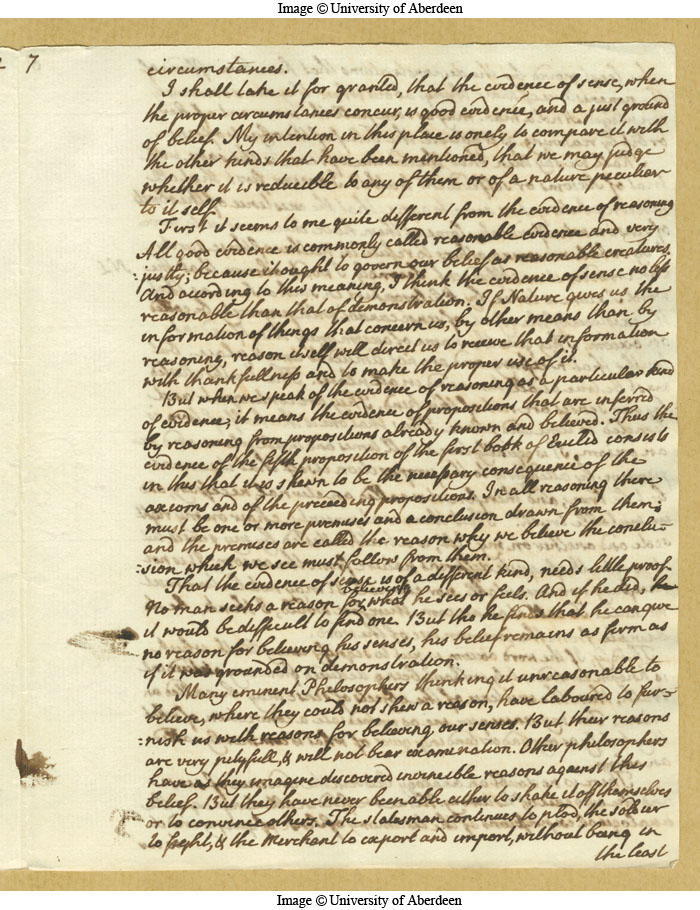 Image © University of Aberdeen
7
circumstances.
I shall take it for granted, that the evidence of sense, when
the proper circumstances concur, is good evidence, and a just ground
of belief. My intention in this place is onely to compare it with
the other kinds that have been mentioned, that we may judge
whether it is reducible to any of them or of a nature peculiar
to it self
First it seems to me quite different from the evidence of reasoning
All good evidence is commonly called reasonable evidence and very
justly; because it ought to govern our belief as reasonable creatures.
And acording to this meaning, I think the evidence of sense no less
reasonable than that of demonstration. If Nature gives us the
information of things that concern us, by other means than by
reasoning, reason itself will direct us to receive that information
with thankfullness and to make the proper use of it.
But when we speak of the evidence of reasoning as a particular kind
of evidence, it means the evidence of propositions that are inferred
by reasoning from propositions already known and believed. Thus the
evidence of the fifth proposition of the first book of Euclid consists
in this that it is shewn to be the necessary consequence of the
axioms and of the preceeding propositions. In all reasoning there
must be one or more premises and a conclusion drawn from them;
and the premises are called the reason why we believe the conclu-
:sion which we see must follow from them.
That the evidence of sense is of a different kind, needs little proof.
believing
No man seeks a reason for what he sees or feels. And if he did,
it would be difficult to find one. But tho he finds that he can give
no reason for believing his senses, his belief remains as firm as
if it was grounded on demonstration.
Many eminent Philosophers thinking it unreasonable to
believe, where they could not shew a reason, have laboured to fur-
:nish us with reasons for believing our senses. But their reasons
are very pityfull, & will not bear examination. Other philosophers
have as they imagine discovered invincible reasons against this
belief. But they have never been able either to shake it off themselves
or to convince others. The statesman continues to plod, the soldier
to fight, & the Merchant to export and import, without being in
the least
Image © University of Aberdeen